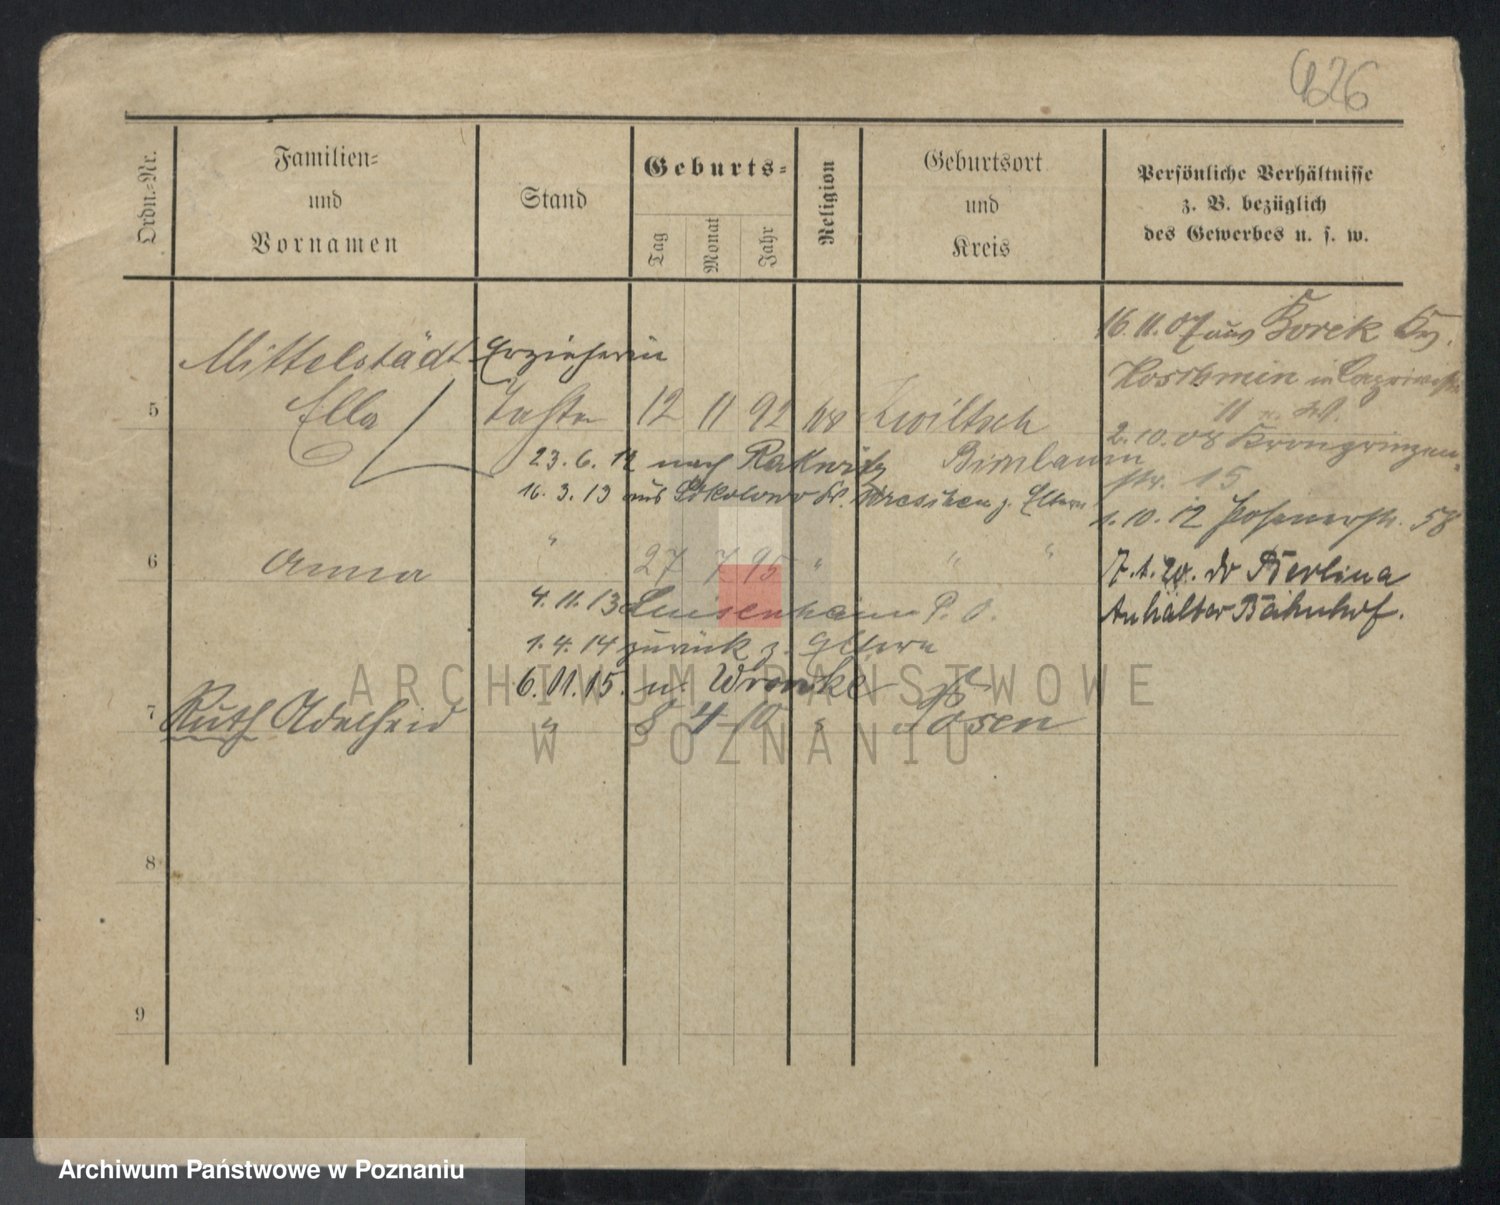 426
Ordn.=Nr.
Familien=
und
Vornamen
Stand
Geburts=
Tag
Monat
Jahr
Religion
Geburtsort
und
Kreis
Persönliche Verhältnisse
z. B. bezüglich
des Gewerbes u. s. w.
16.11.07 aus Borek Kr.
Mittelstädt Erzieherin
Koschmin in
5 Ella Tochter 12 11 92 Kwiltsch
11
2.10.08 Kronprinzen-
23.6.12 nach Rakwitz Birnbaum
str. 15
16.3.13 aus Sokolowo Kr. Wreschen z. Eltern
1.10.12 Posenerstr. 58
6 Anna " 27 7 95 " " "
7.1.20. Berlin
4.11.13 Luisenhain P. O.
Anhalter Bahnhof.
1.4.14 zurück z. Eltern
6.11.15. n. Wronke
7 Ruth Adelheid " 8 4 10 " Posen
8
9
ARCHIWUM PAŃSTWOWE
W POZNANIU
Archiwum Państwowe w Poznaniu